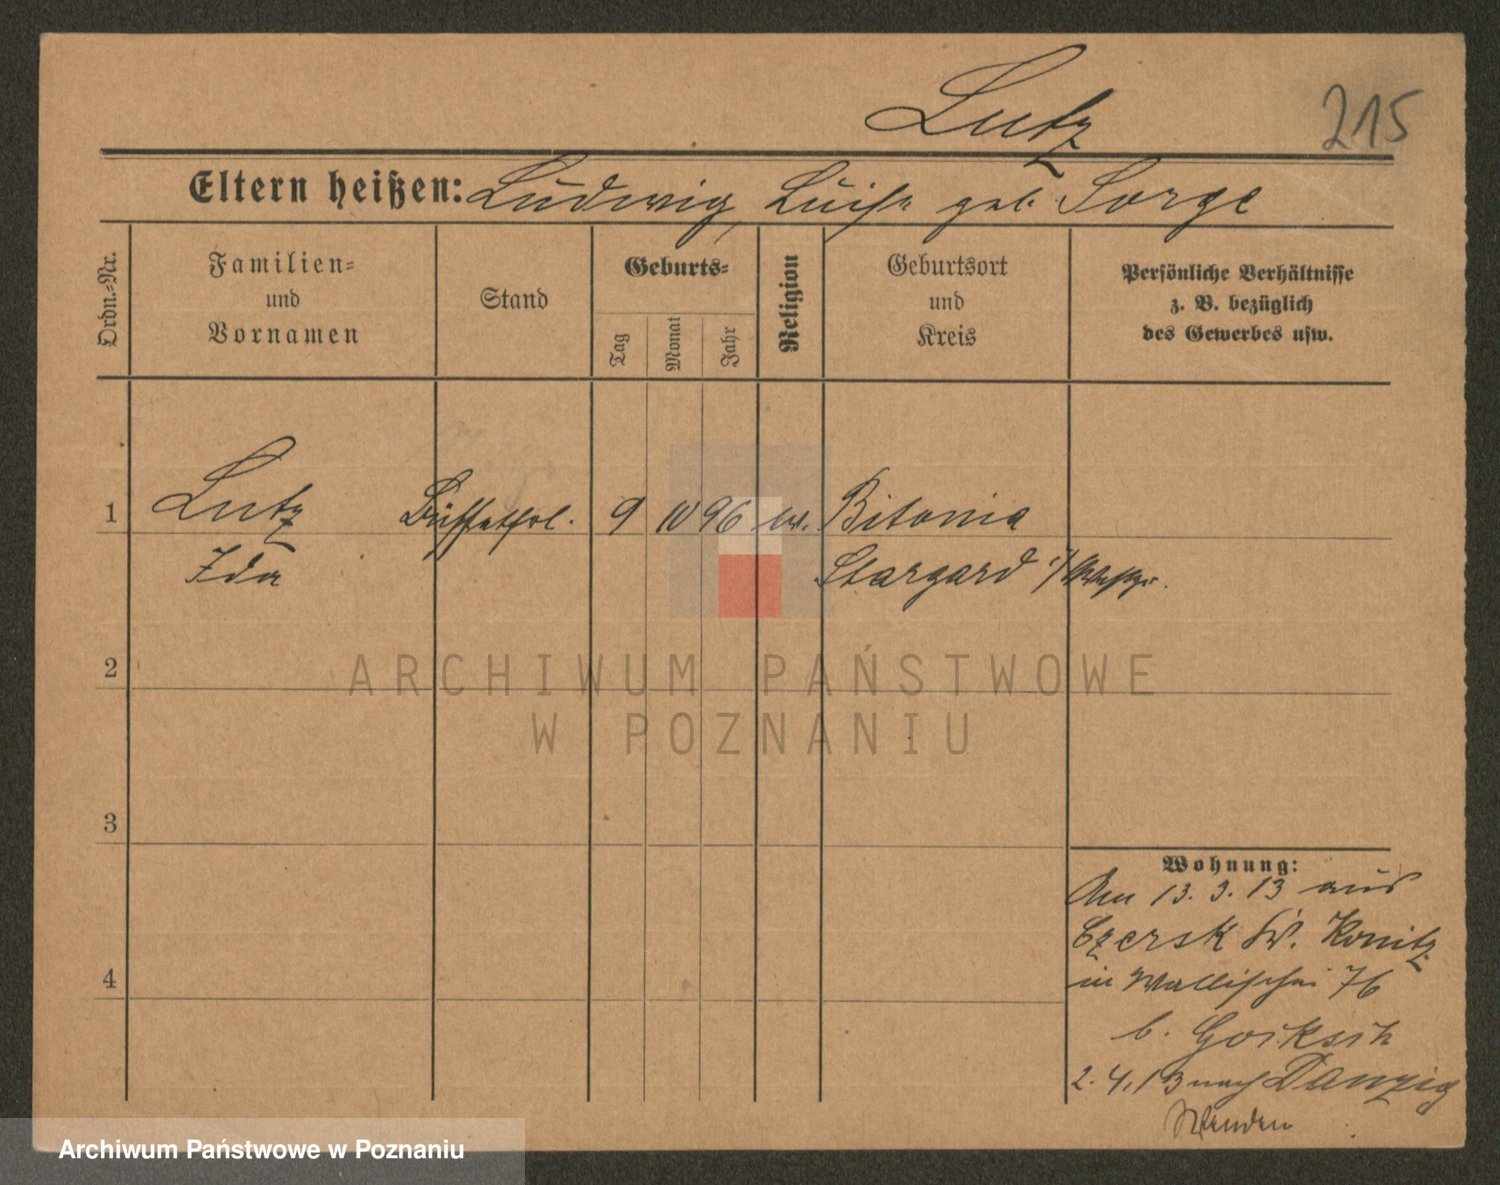 Lutz
215
Eltern heißen: Ludwig, Luise geb. Sorge
Ordn.=Nr.
Familien=
und
Vornamen
Stand
Geburts=
Tag
Monat
Jahr
Religion
Geburtsort
und
Kreis
Persönliche Verhältnisse
z. B. bezüglich
des Gewerbes usw.
1
Lutz Büffetfrl. 9 10 96 ev. Bitonia
Ida Stargard i/Westpr.
2
ARCHIWUM PAŃSTWOWE
W POZNANIU
3
4
Wohnung:
Am 13. 3. 13 aus
Czersk Kr. Konitz
in Wallischei 76
b.
2. 4. 13 nach Danzig
Wenden
Archiwum Państwowe w Poznaniu